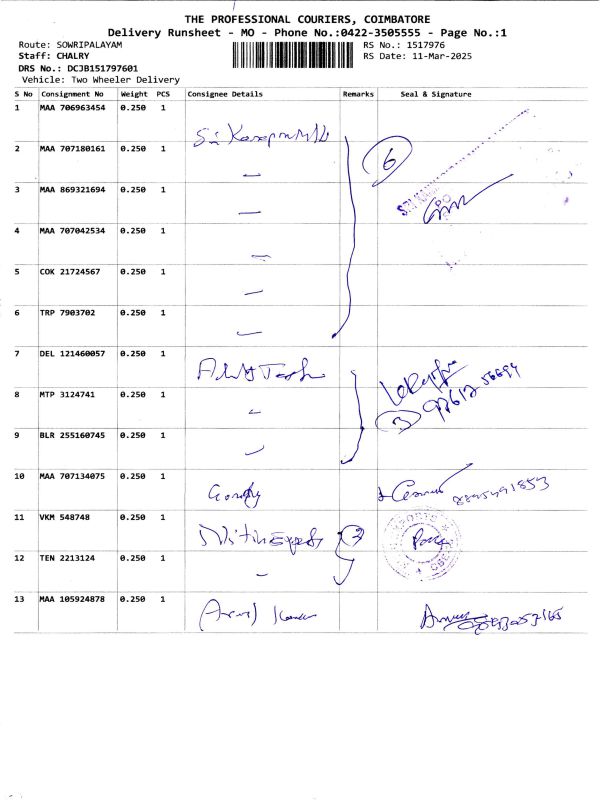 THE PROFESSIONAL COURIERS, COIMBATORE
Delivery Runsheet - MO - Phone No.:0422-3505555 - Page No.:1
Route: SOWRIPALAYAM
RS No.: 1517976
Staff: CHALRY
RS Date: 11-Mar-2025
DRS No.: DCJB151797601
Vehicle: Two Wheeler Delivery
S No Consignment No Weight PCS Consignee Details Remarks Seal & Signature
1 MAA 706963454 0.250 1
2 MAA 707180161 0.250 1 6
3 MAA 869321694 0.250 1
4 MAA 707042534 0.250 1
5 COK 21724567 0.250 1
6 TRP 7903702 0.250 1
7 DEL 121460057 0.250 1
8 MTP 3124741 0.250 1 3
9 BLR 255160745 0.250 1
10 MAA 707134075 0.250 1
11 VKM 548748 0.250 1
12 TEN 2213124 0.250 1
13 MAA 105924878 0.250 1